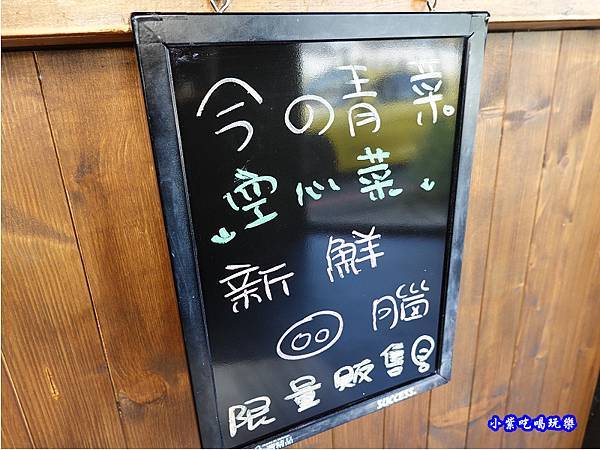 今の青菜
空心菜
新鮮
腦
限量販售
SUCCESS
小紫吃喝玩樂